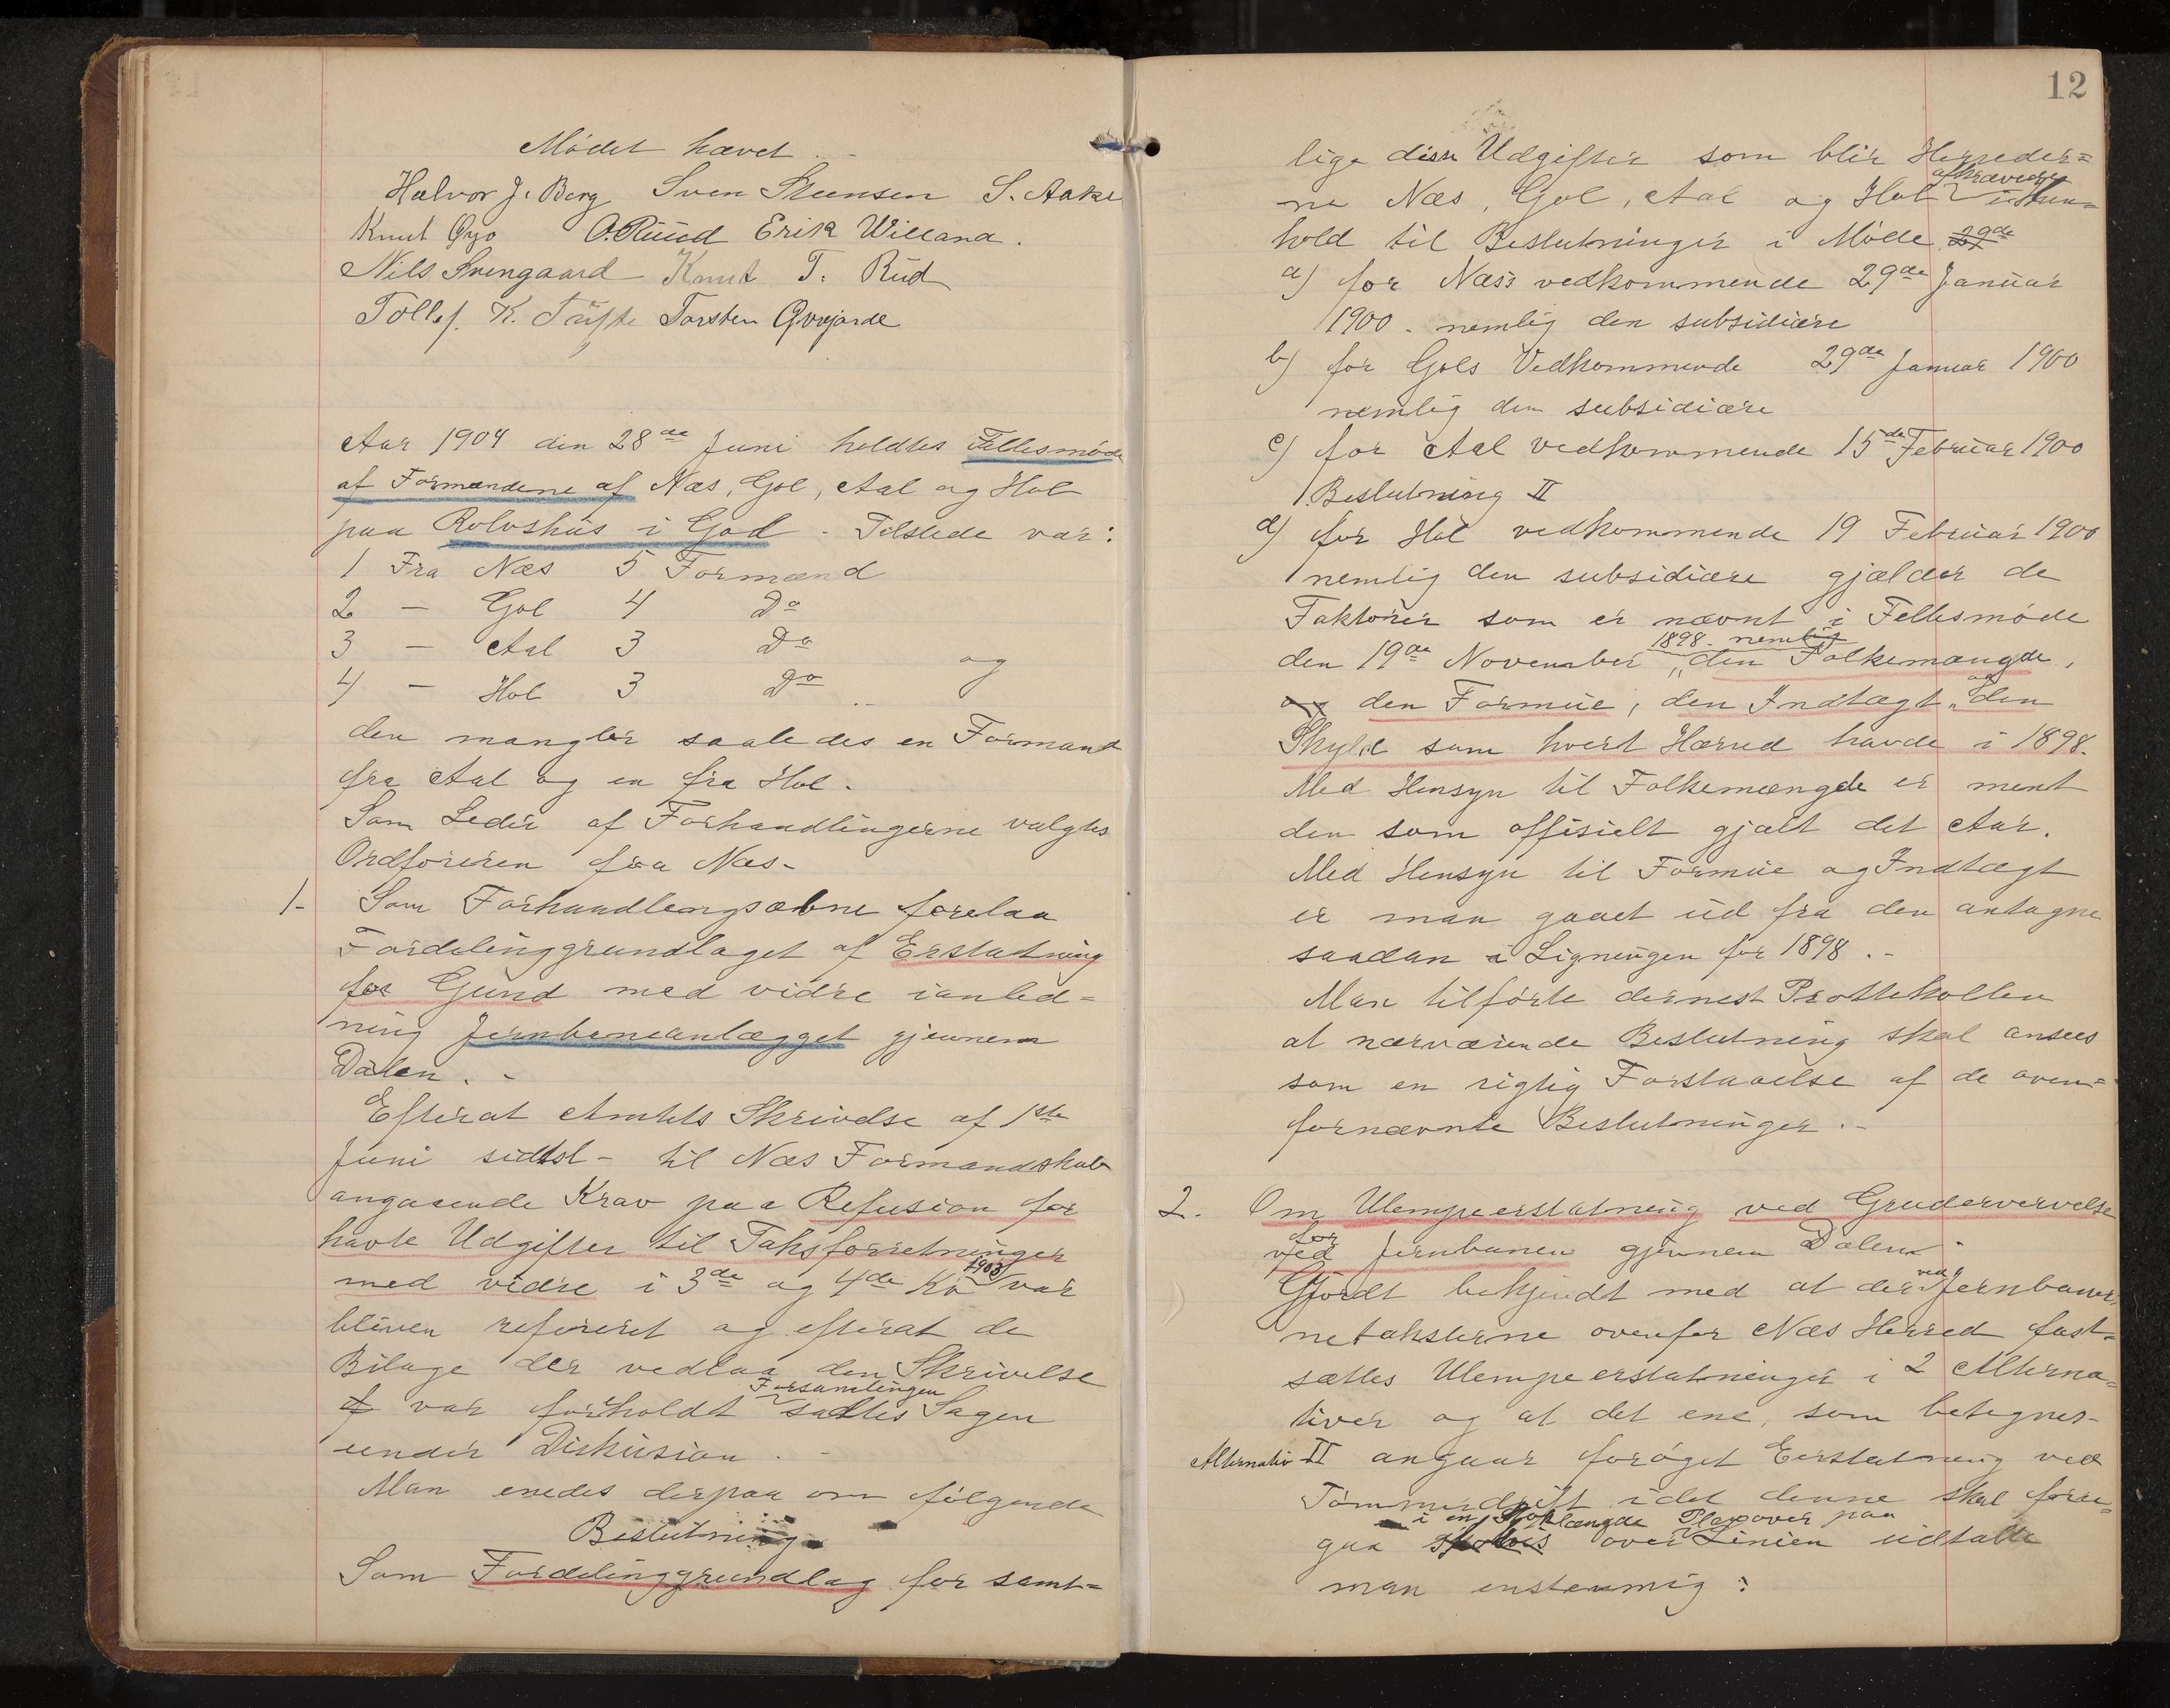 Mødet hævet.
Halvor J. Berg Sven Steensen S. Aaker
Knut Øyo O. Ruud Erik Willand.
Nils Svengaard Knut T. Rud
Tollef. K. Tufte Torsten
Aar 1904 den 28de Juni holdtes Fellesmøde
af Formændene af Næs, Gol, Aal og Hol
paa Rolvshus i Gol - Tilstede var:
1 Fra Næs 5 Formænd
2 — Gol 4 Do
3 — Aal 3 Do og
4 — Hol 3 Do
der mangler saaledes en Formand
fra Aal og en fra Hol.
Som Leder af Forhandlingerne valgtes
Ordføreren fra Næs-
1- Som Forhandlingsæbne forelaa
Fordelinggrundlaget af Erstatning
for Gund med vidre ianled=
ning Jernbaneanlægget gjennem
Dalen. -
Efterat Amtets Skrivelse af 1ste
Juni sidstl- til Næs Formandskab
angaaende Krav paa Refusion for
havte Udgifter til Taksforretninger
med vidre i 3de og 4de Kv 1903 var
bleven refereret og efterat de
Bilage der vedlaa den Skrivelse
var forholdt Forsamlingen sattes Sagen
under Diskusion. -
Man enedes derpaa om følgende
Beslutning
Som Fordelinggrundlag for samt=
12
lige disse Udgifter som blir Herreder=
ne Næs, Gol, Aal og Hol afkrævede i hen=
hold til Beslutninger i Møde 29de
a) for Næss vedkommende 29de Januar
1900. nemlig den subsidiære
b) for Gols Vedkommende 29de Januar 1900
nemlig den subsidiære
c) for Aal vedkommende 15de Februar 1900
Beslutning II
d) for Hol vedkommende 19 Februar 1900
nemlig den subsidiære gjælder de
Faktorer som er nævnt i Fellesmøde
den 19de November 1898 - nemlig den Folkemængde,
og den Formue, den Indtægt og den
Skyld som hvert Herred havde i 1898.
Med Hensyn til Folkemængde er ment
den som offisielt gjalt det Aar.
Med Hensyn til Formue og Indtægt
er man gaaet ud fra den antagne
saadan i Ligningen for 1898. -
Man tilførte dernest Prottekollen
at nærværende Beslutning skal ansees
som en rigtig Forstaaelse af de oven=
fornævnte Beslutninger. -
2. Om Ulempeerstatning ved Grudervervelse
ved for Jernbanen gjennem Dalen -
Gjordt bekjendt med at der ved Jernbane
netaksterne ovenfor Næs Herred fast=
sættes Ulempeerstatninger i 2 Alterna=
tiver og at det ene, som betegnes-
Alternativ II angaar forøget Eerstatning ved
Tømmerdrift idet denne skal fore=
gaa i en Stoklængde over Linien udtalte
man enstemmig: